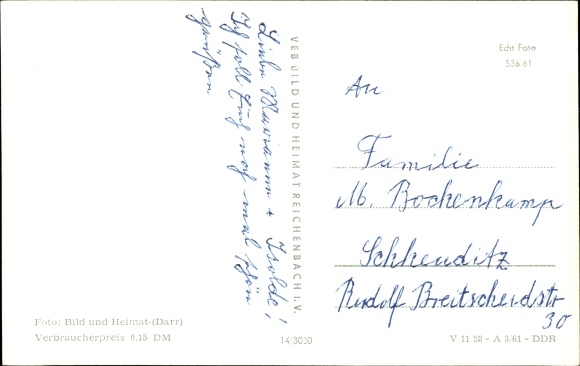 Liebe Marianne + Isolde!
Ich soll Euch noch mal schön
grüßen
VEB BILD UND HEIMAT REICHENBACH I. V.
Echt Foto
536/61
An
Familie
M. Bochenkamp
Schkeuditz
Rudolf Breitscheidstr
30
Foto: Bild und Heimat (Darr)
Verbraucherpreis 0.15 DM
14/3030
V 11 28 - A 3/61 - DDR